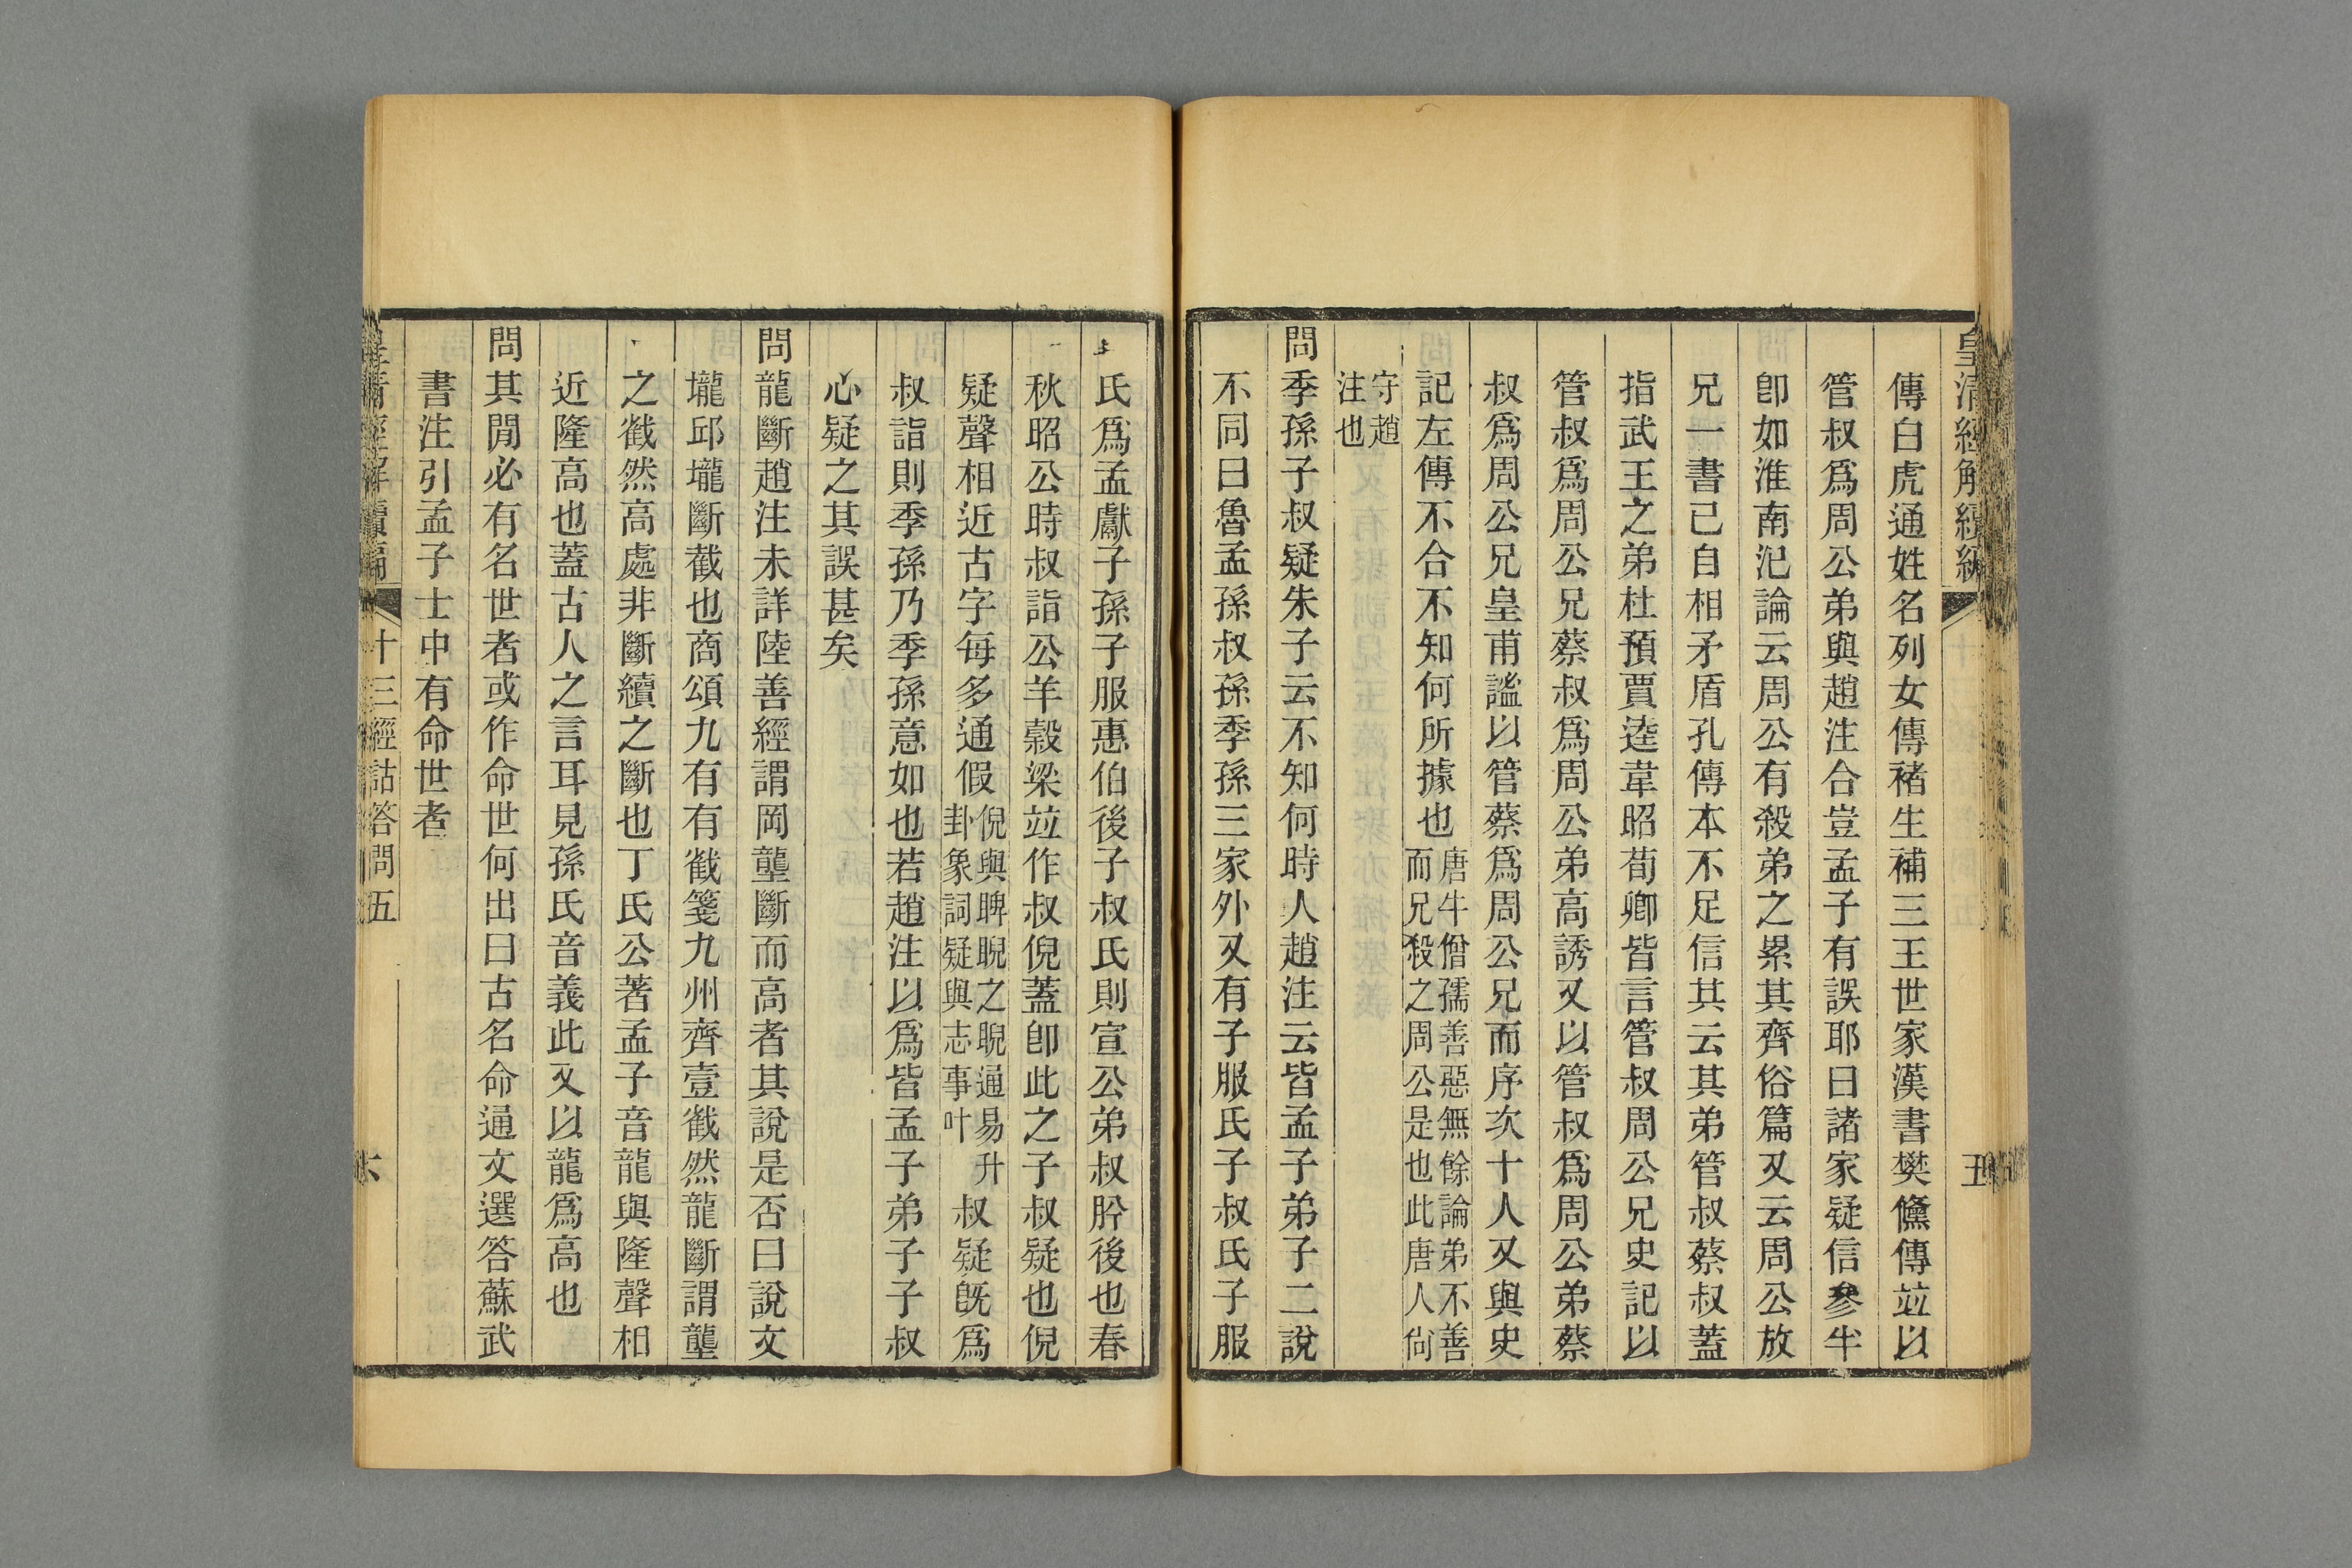 皇清經解續編
五
傳白虎通姓名列女傳褚生補三王世家漢書樊儵傳竝以
管叔爲周公弟與趙注合豈孟子有誤耶曰諸家疑信參半
卽如淮南氾論云周公有殺弟之累其齊俗篇又云周公放
兄一書已自相矛盾孔傳本不足信其云其弟管叔蔡叔蓋
指武王之弟杜預賈逵韋昭荀卿皆言管叔周公兄史記以
管叔爲周公兄蔡叔爲周公弟高誘又以管叔爲周公弟蔡
叔爲周公兄皇甫謐以管蔡爲周公兄而序次十人又與史
記左傳不合不知何所據也唐牛僧孺善惡無餘論弟不善而兄殺之周公是也此唐人尙
守趙注也
問季孫子叔疑朱子云不知何時人趙注云皆孟子弟子二說
不同曰魯孟孫叔孫季孫三家外又有子服氏子叔氏子服
氏爲孟獻子孫子服惠伯後子叔氏則宣公弟叔肸後也春
秋昭公時叔詣公羊穀梁竝作叔倪蓋卽此之子叔疑也倪
疑聲相近古字每多通假倪與睥睨之睨通易升卦象詞疑與志事叶叔疑旣爲
叔詣則季孫乃季孫意如也若趙注以爲皆孟子弟子子叔
心疑之其誤甚矣
問龍斷趙注未詳陸善經謂岡壟斷而高者其說是否曰說文
壠邱壠斷截也商頌九有有截箋九州齊壹截然龍斷謂壟
之截然高處非斷續之斷也丁氏公著孟子音龍與隆聲相
近隆高也蓋古人之言耳見孫氏音義此又以龍爲高也
問其閒必有名世者或作命世何出曰古名命通文選答蘇武
書注引孟子士中有命世者
皇清經解續編
十三經詁答問五
六